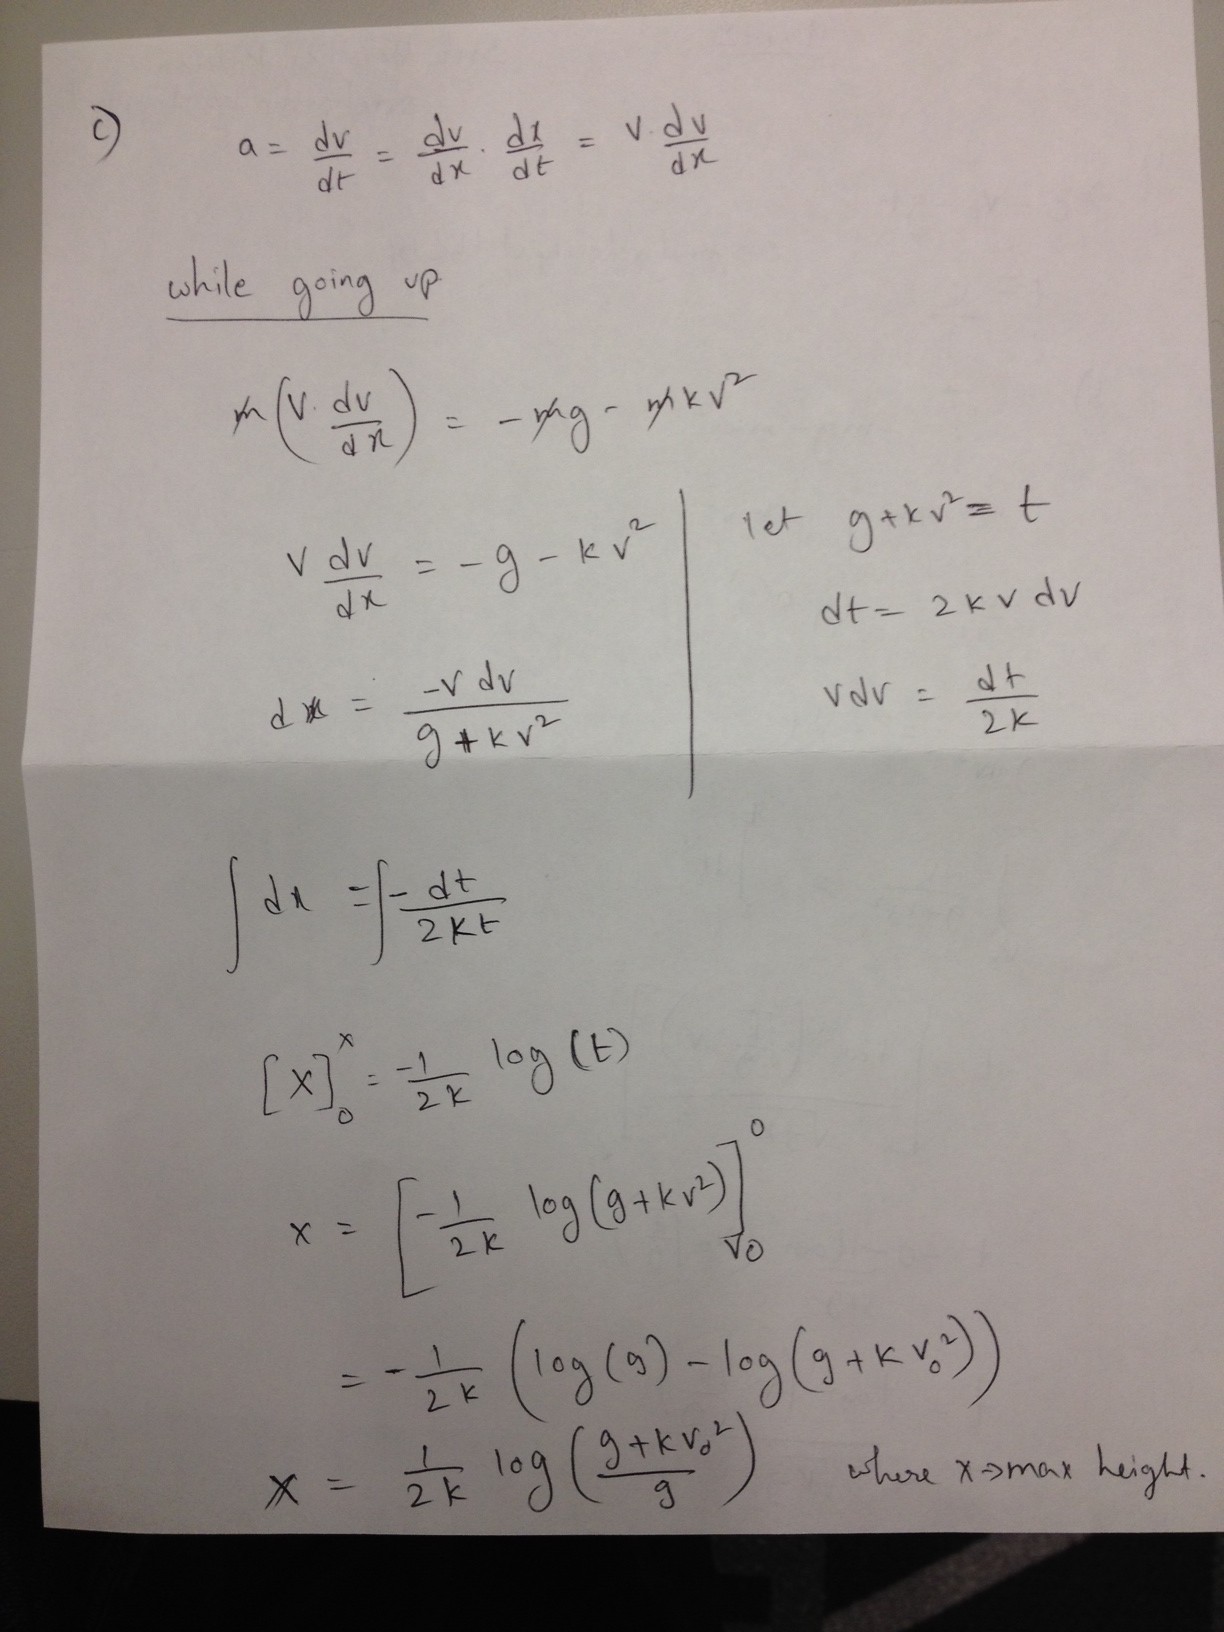 c) a = dv/dt = dv/dx . dx/dt = v. dv/dx
while going up
m(v. dv/dx) = -mg - mkv²
v dv/dx = -g - kv²
dx = -v dv / g+kv²
let g+kv² = t
dt = 2kv dv
vdv = dt/2k
∫dx = ∫- dt/2kt
[x]₀ˣ = -1/2k log(t)
x = [-1/2k log(g+kv²)]_{v₀}^{0}
= -1/2k (log(g) - log(g+kv₀²))
x = 1/2k log(g+kv₀²/g) where x→max height.